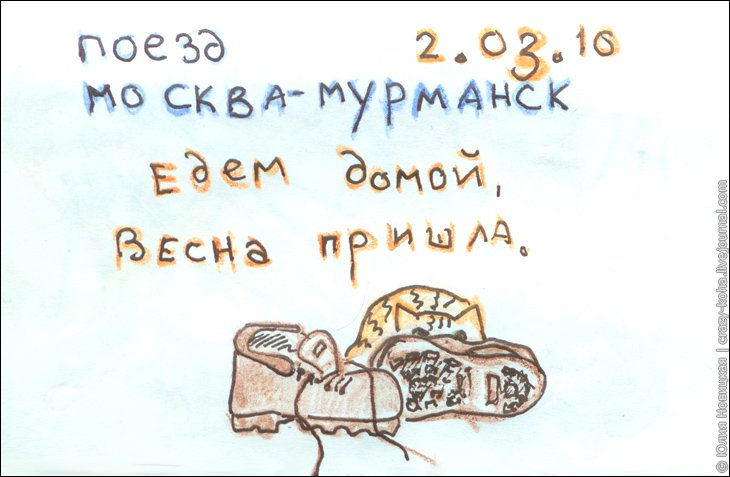 поезд 2.03.10
МОСКВА-МУРМАНСК
Едем домой,
Весна пришла.
© Юлия Новицкая | crazy-koha.livejournal.com